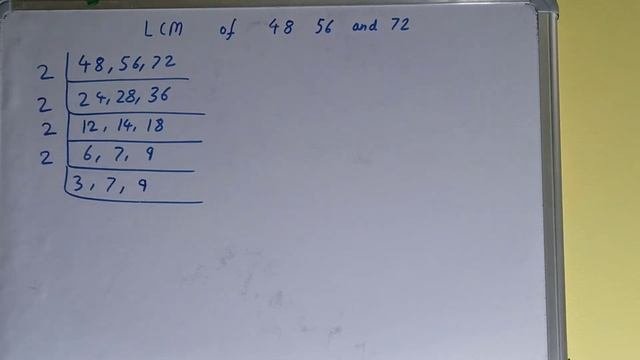 LCM of 48 56 and 72
2 | 48, 56, 72
2 | 24, 28, 36
2 | 12, 14, 18
2 | 6, 7, 9
3, 7, 9